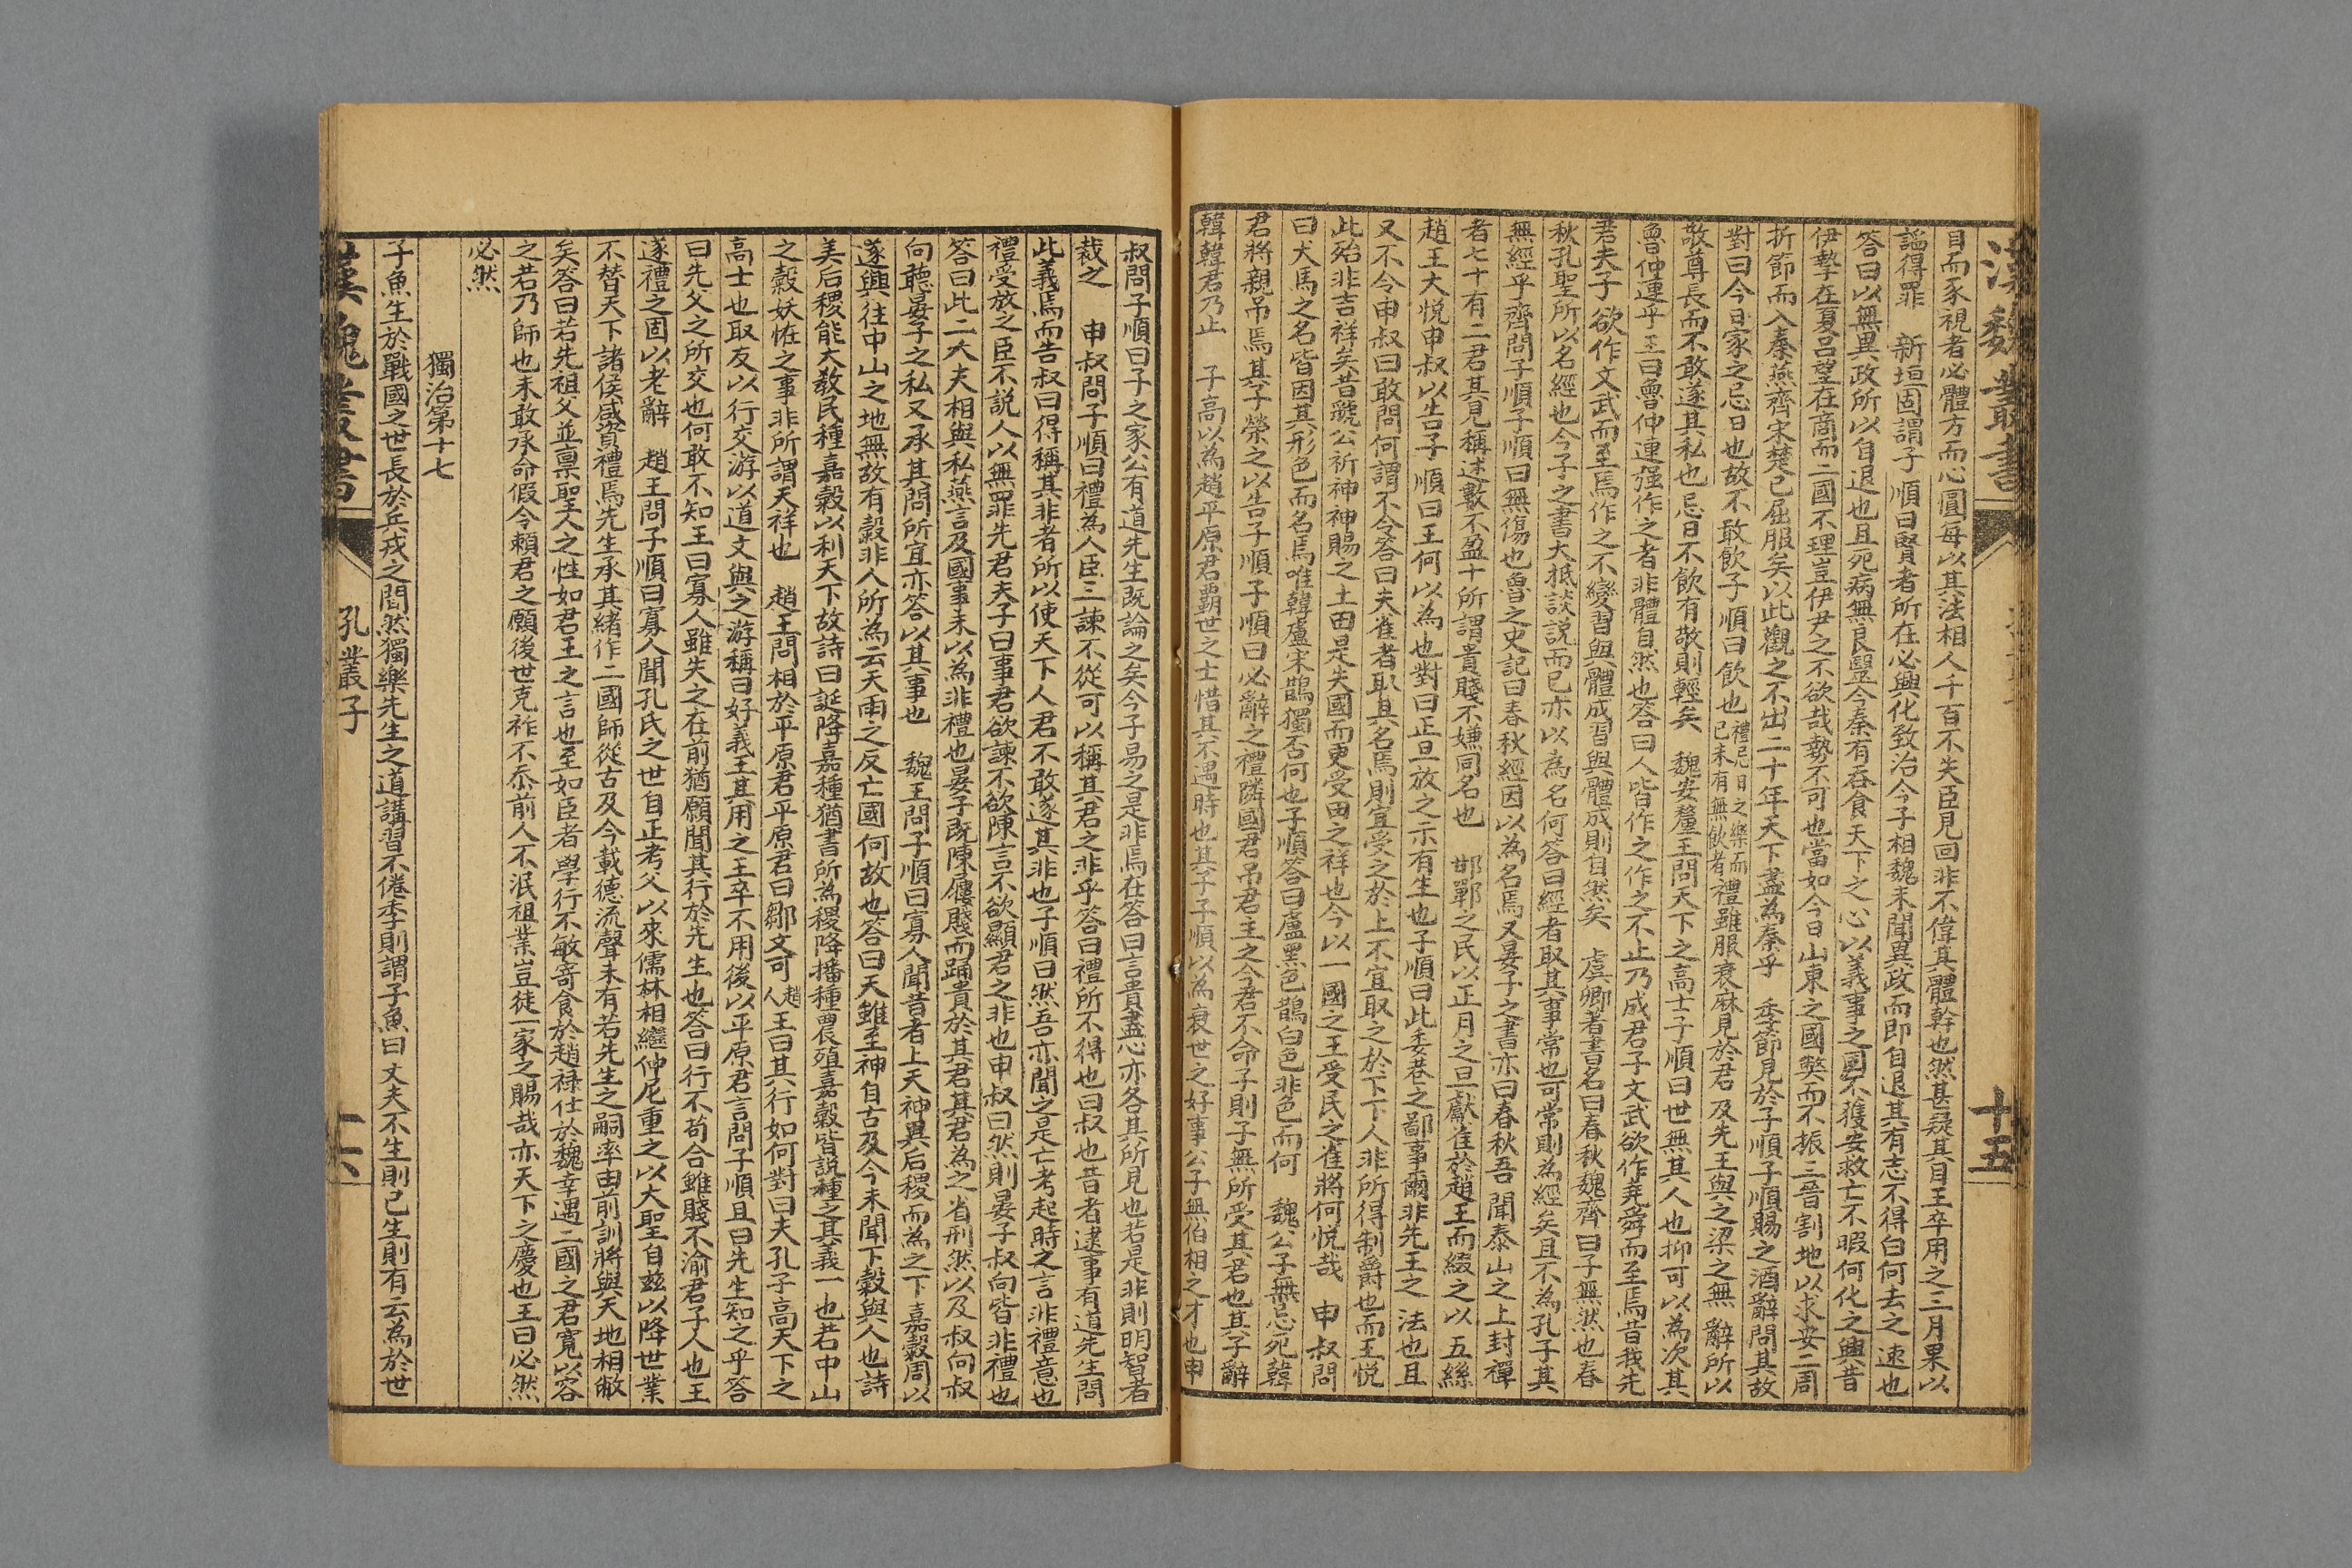 漢魏叢書
十五
目而豕視者必體方而心圓每以其法相人千百不失臣見回非不偉其體幹也然甚疑其目王卒用之三月果以
諂得罪　新垣固謂子順曰賢者所在必興化致治今子相魏未聞異政而即自退其有志不得自何去之速也
答曰以無異政所以自退也且死病無良醫今秦有吞食天下之心以義事之固不獲安救亡不暇何化之興昔
伊摯在夏呂望在商而二國不理豈伊尹之不欲哉勢不可也當如今日山東之國弊而不振三晉割地以求安二周
折節而入秦燕齊宋楚已屈服矣以此觀之不出二十年天下盡為秦乎　季節見於子順子順賜之酒辭問其故
對曰今日家之忌日也故不敢飲子順曰飲也禮忌日之樂而已未有無飲者禮雖服衰麻見於君及先王與之梁之無辭所以
敬尊長而不敢遂其私也忌日不飲有敬則輕矣　魏安釐王問天下之高士子順曰世無其人也抑可以為次其
魯仲連乎王曰魯仲連强作之者非體自然也答曰人皆作之作之不止乃成君子文武欲作堯舜而至焉昔我先
君夫子欲作文武而至焉作之不變習與體成習與體成則自然矣　虞卿著書名曰春秋魏齊曰子無然也春
秋孔聖所以名經也今子之書大抵談說而已亦以為名何答曰經者取其事常也可常則為經矣且不為孔子其
無經乎齊問子順子順曰無傷也魯之史記曰春秋經因以為名焉又晏子之書亦曰春秋吾聞泰山之上封禪
者七十有二君其見稱述數不盈十所謂貴賤不嫌同名也　邯鄲之民以正月之旦獻雀於趙王而綴之以五絲
趙王大悅申叔以告子順曰王何以為也對曰正旦放之示有生也子順曰此委巷之鄙事爾非先王之法也且
又不令申叔曰敢問何謂不令答曰夫雀者取其名焉則宜受之於上不宜取之於下下人非所得制爵也而王悅
此殆非吉祥矣昔虢公祈神神賜之土田是失國而更受田之祥也今以一國之王受民之雀將何悅哉　申叔問
曰犬馬之名皆因其形色而名焉唯韓盧宋鵲獨否何也子順答曰盧黑色鵲白色非色而何　魏公子無忌死韓
君將親吊焉其子榮之以告子順子順曰必辭之禮隣國君吊君主之今君不命子則子無所受其君也其子辭
韓韓君乃止　子高以為趙平原君霸世之士惜其不遇時也其子子順以為衰世之好事公子無伯相之才也申
叔問子順曰子之家公有道先生既論之矣今子易之是非焉在答曰言貴盡心亦各其所見也若是非則明智者
裁之　申叔問子順曰禮為人臣三諫不從可以稱其君之非乎答曰禮所不得也曰叔也昔者逮事有道先生問
此義焉而告叔曰得稱其非者所以使天下人君不敢遂其非也子順曰然吾亦聞之是亡考起時之言非禮意也
禮受放之臣不說人以無罪先君夫子曰事君欲諫不欲陳言不欲顯君之非也申叔曰然則晏子叔向皆非禮也
答曰此二大夫相與私燕言及國事未以為非禮也晏子既陳屨賤而踊貴於其君其君為之省刑然以及叔向叔
向聽晏子之私又承其問所宜亦答以其事也　魏王問子順曰寡人聞昔者上天神異后稷而為之下嘉穀周以
遂興往中山之地無故有穀非人所為云天雨之反亡國何故也答曰天雖至神自古及今未聞下穀與人也詩
美后稷能大教民種嘉穀以利天下故詩曰誕降嘉種猶書所為稷降播種農殖嘉穀皆說種之其義一也若中山
之穀妖怪之事非所謂天祥也　趙王問相於平原君平原君曰鄒文可趙人王曰其行如何對曰夫孔子高天下之
高士也取友以行交游以道文與之游稱曰好義王其用之王卒不用後以平原君言問子順且曰先生知之乎答
曰先父之所交也何敢不知王曰寡人雖失之在前猶願聞其行於先生也答曰行不苟合雖賤不渝君子人也王
遂禮之固以老辭　趙王問子順曰寡人聞孔氏之世自正考父以來儒林相繼仲尼重之以大聖自茲以降世業
不替天下諸侯咸資禮焉先生承其緒作二國師從古及今載德流聲未有若先生之嗣率由前訓將與天地相敝
矣答曰若先祖父並禀聖人之性如君王之言也至如臣者學行不敏寄食於趙祿仕於魏幸遇二國之君寬以容
之若乃師也未敢承命假令賴君之願後世克祚不忝前人不泯祖業豈徒一家之賜哉亦天下之慶也王曰必然
必然
獨治第十七
子魚生於戰國之世長於兵戎之間然獨樂先生之道講習不倦季則謂子魚曰丈夫不生則已生則有云為於世
漢魏叢書
孔叢子
十六